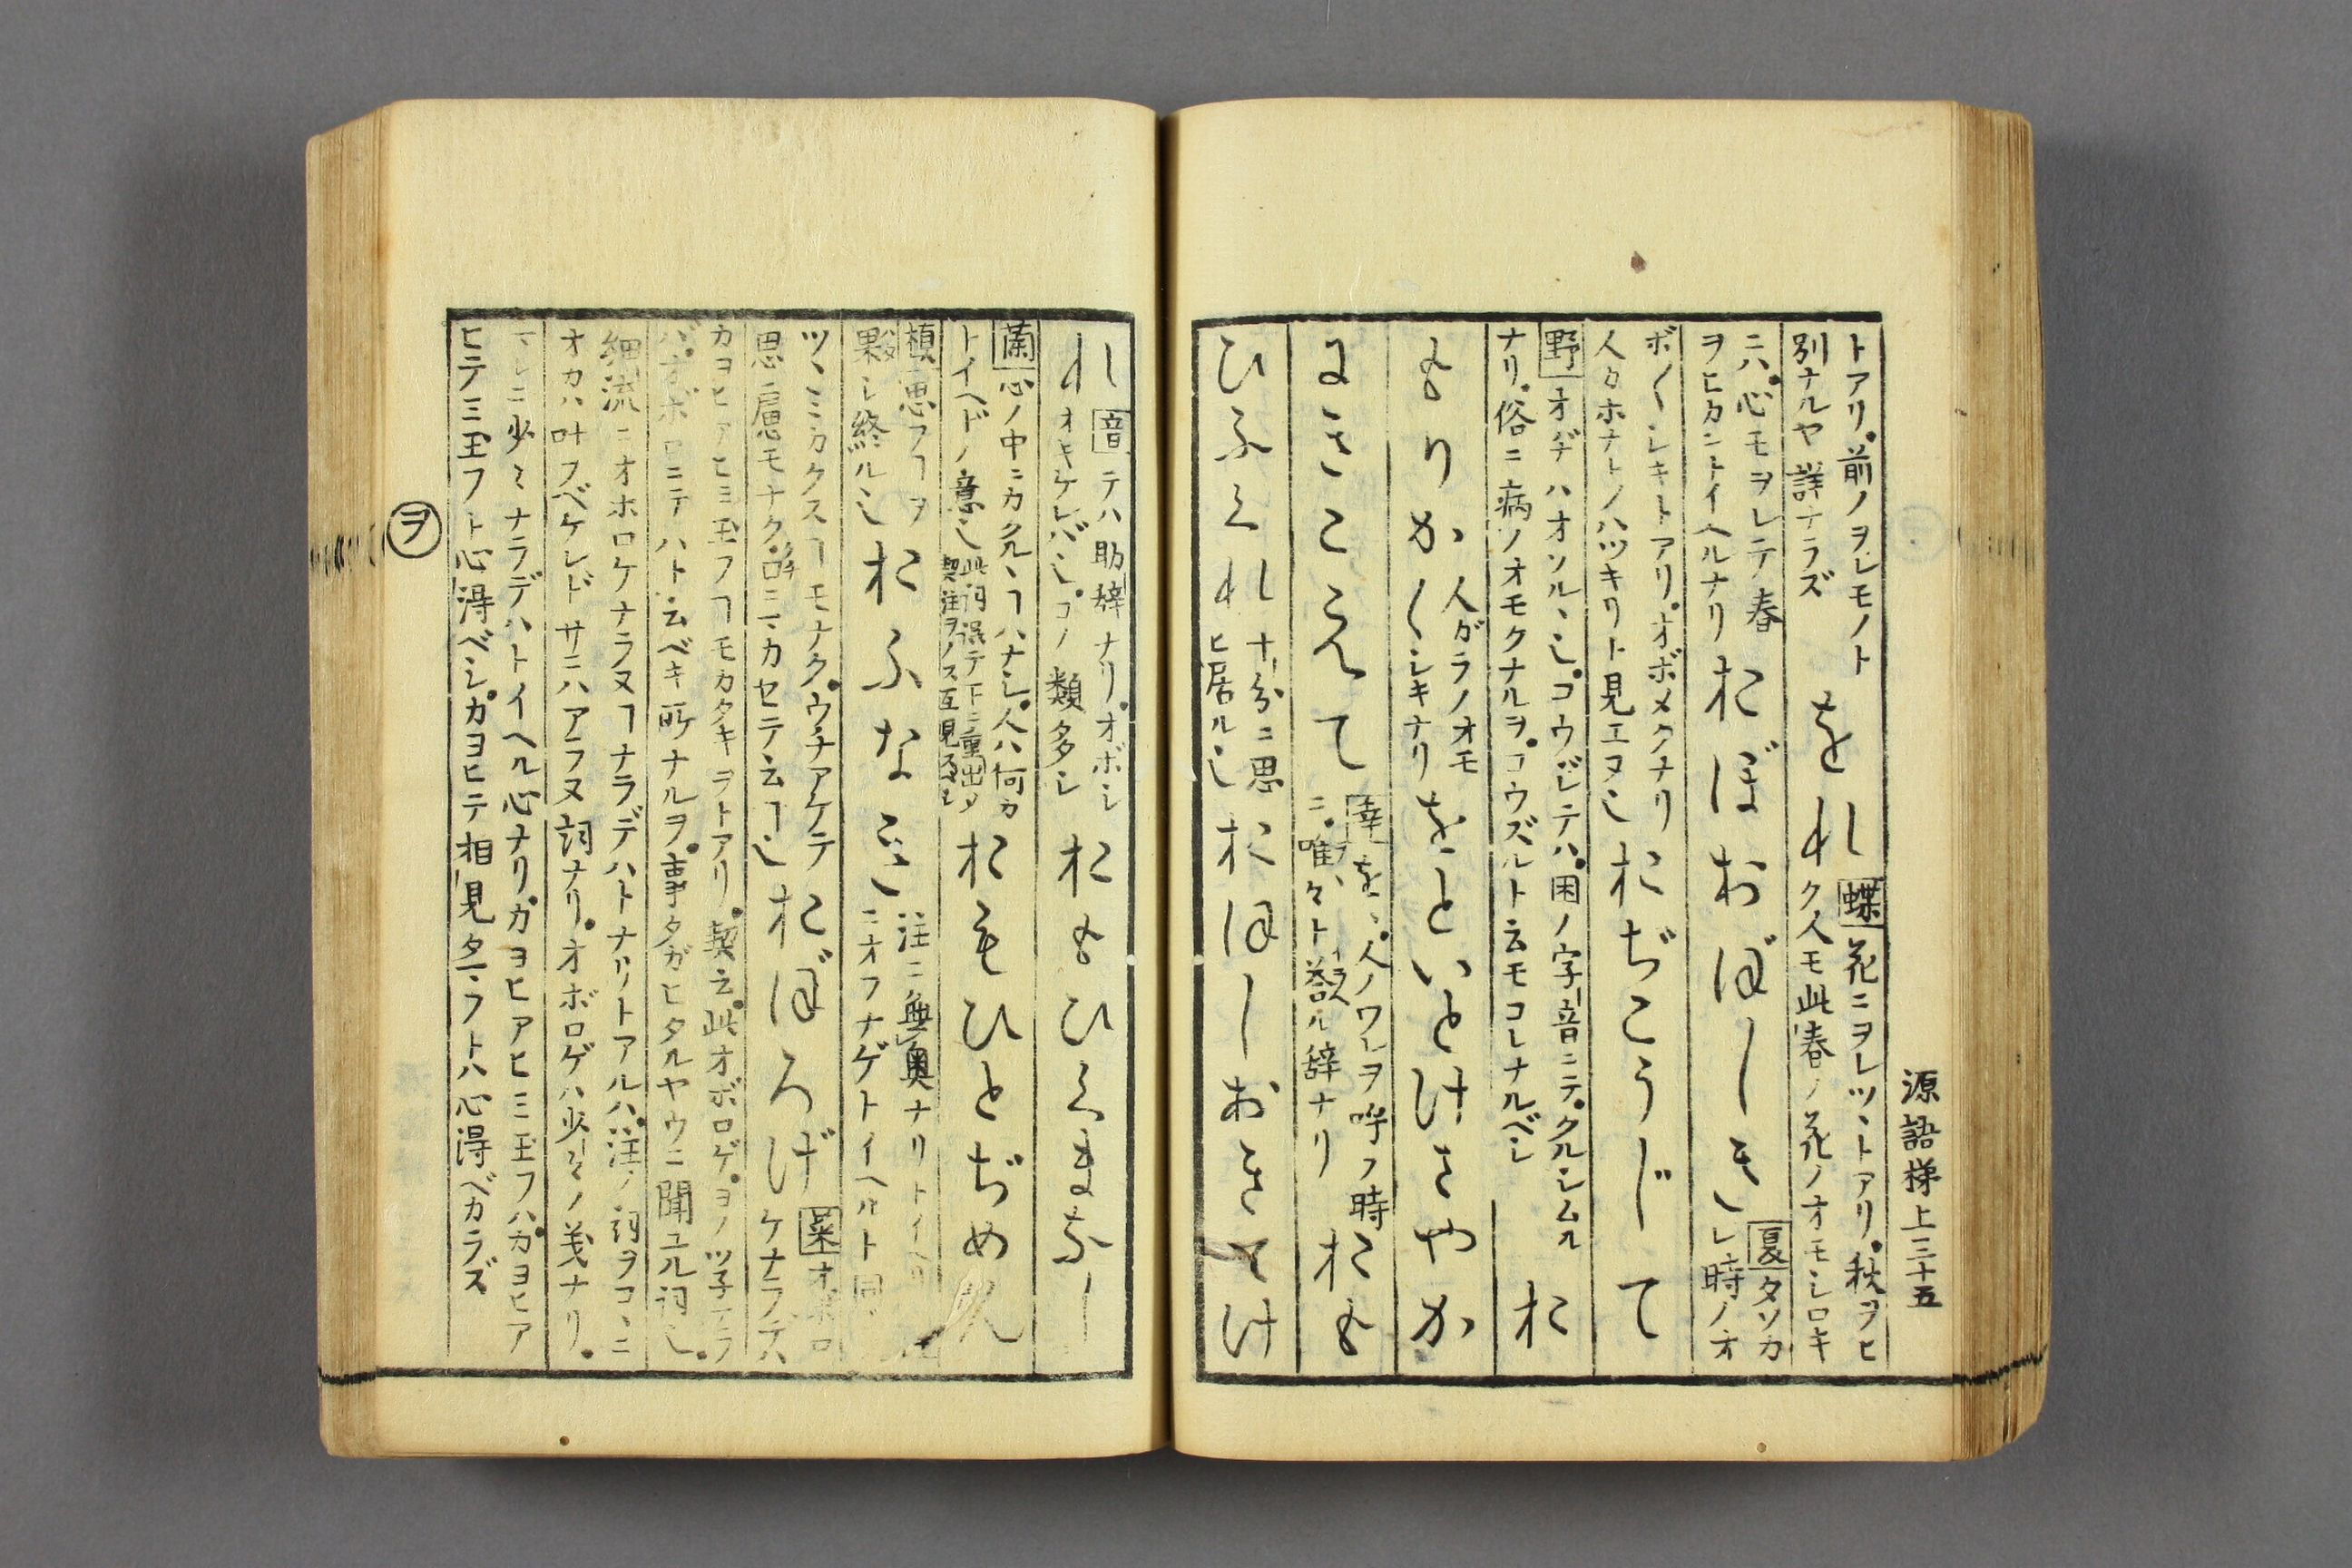 源語梯上三十五
トアリ。前ノヲレモノト
別ナルヤ詳ナラズ
をれ
蝶 花ニヲレツヽトアリ。秋ヲヒ
ク人モ此春ノ花ノオモシロキ
ニハ。心モヲレテ春
ヲヒカントイヘルナリ
おぼおぼしき
夏 タソカ
レ時ノオ
ボ〱シキトアリ。オボメクナリ
人カホナトノハツキリト見エヌ也
おぢこうじて
野 オヂハオソルヽ也。コウジテハ。困ノ字音ニテ。クルシムル
ナリ。俗ニ病ノオモクナルヲ。コウズルト云モコレナルベシ
お
もりかく
人ガラノオモ
〱シキナリ
をといとけさやか
にきこえて
幸 をヽ。人ノワレヲ呼フ時
ニ。唯々ト答ル辞ナリ
おも
ひふくれ
十分ニ思
ヒ居ル也
おほしおきてけ
れ
音 テハ助辞ナリ。オボシ
オキケレバ也。コノ類多シ
おもひくまなし
蘭 心ノ中ニカクルヽヿハナシ。人ハ何カ
トイヘドノ意也
此詞誤テ下ニ重出タ
おもひとぢめん
槙 悪フヿヲ
果シ終ル也
おふなきこ
注ニ無奥ナリトイヘリ
ニオフナゲトイヘルト同
ツヽミカクスヿモナク。ウチアケテ
思慮モナク。口ニマカセテ云ヿ也
おぼろげ
菜 オボロ
ケナラデハ
カヨヒアヒ玉フヿモカタキヲトアリ。契云。此オボロゲ。ヨノツ子ナラ
バ。オボロニテハト云ベキ所ナルヲ。事タガヒタルヤウニ聞ユル詞也。
細流ニオホロケナラヌヿナラデハトナリトアルハ。注ノ詞ヲコヽニ
オカハ叶フベケレドサニハアラヌ詞ナリ。オボロゲハ少シノ義ナリ。
マレニ少ミナラデハトイヘル心ナリ。カヨヒアヒ玉フハ。カヨヒア
ヒテ玉フト心得ベシ。カヨヒテ相見タマフトハ心得ベカラズ
ヲ